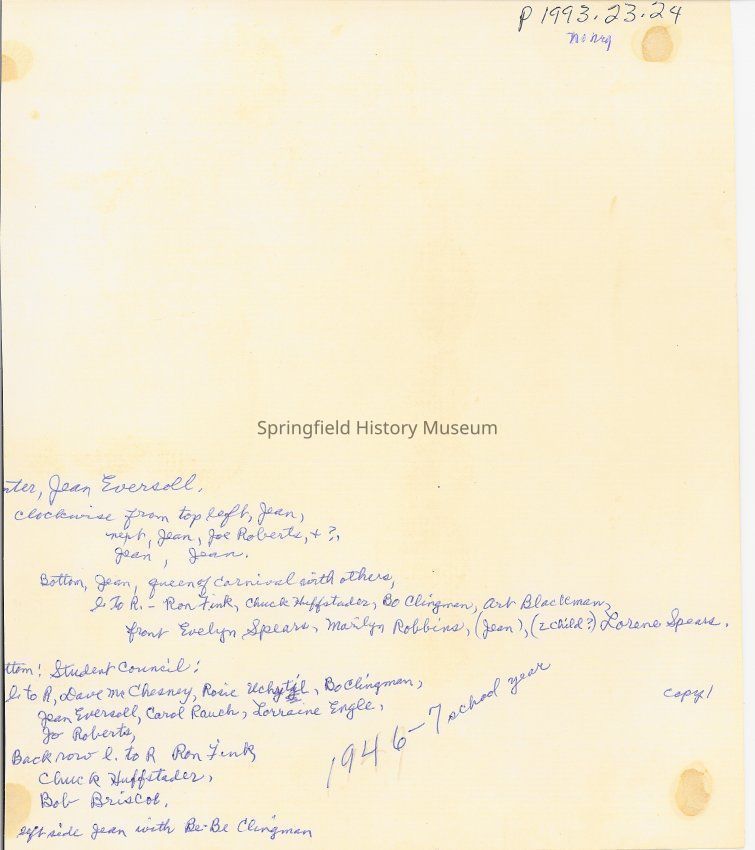 P 1993.23.24
no neg
Springfield History Museum
nter, Jean Eversoll.
clockwise from top left, Jean,
next, Jean, Joe Roberts, + ?,
Jean, Jean.
Bottom, Jean, queen of carnival with others,
L to R. - Ron Fink, Chuck Huffstader, Bo Clingman, Art Blackman,
front Evelyn Spears, Marilyn Robbins, (Jean), (2 child?) Lorene Spears.
ttom: Student Council:
L to R, Dave McChesney, Rosie Uchytil, Bo Clingman,
Jean Eversoll, Carol Rauch, Lorraine Engle,
Jo Roberts,
Back row L. to R Ron Fink,
Chuck Huffstader,
Bob Briscoe.
left side Jean with Be-Be Clingman
1946-7 school year
copy 1